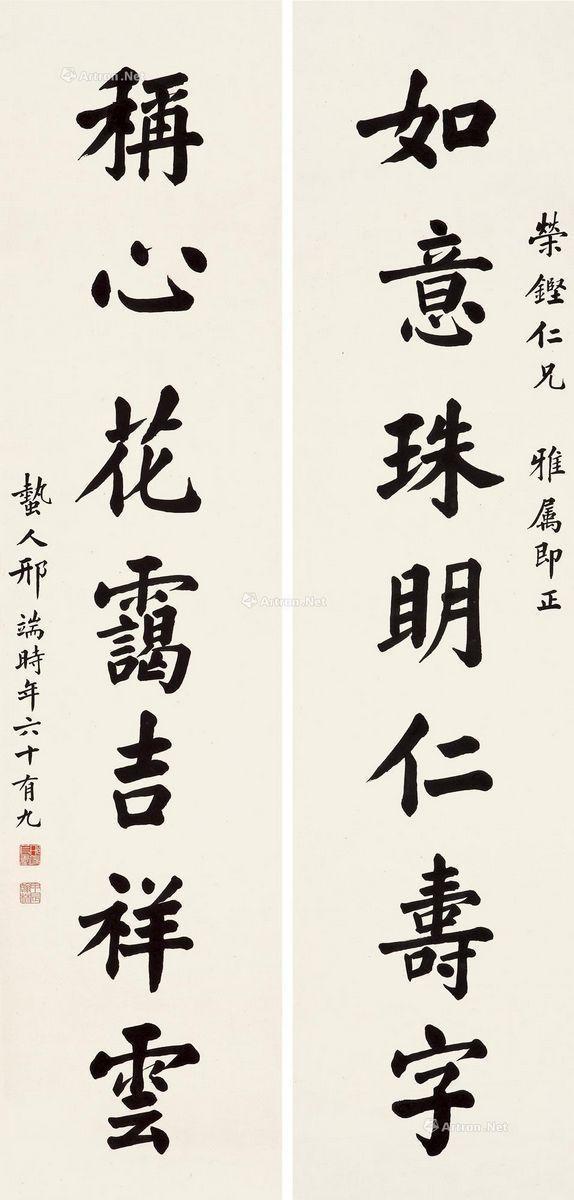 榮鏗仁兄 雅属即正
如意珠明仁壽字
稱心花靄吉祥雲
蟄人邢端時年六十有九
Artron.Net
Artron.Net
Artron.Net
Artron.Net